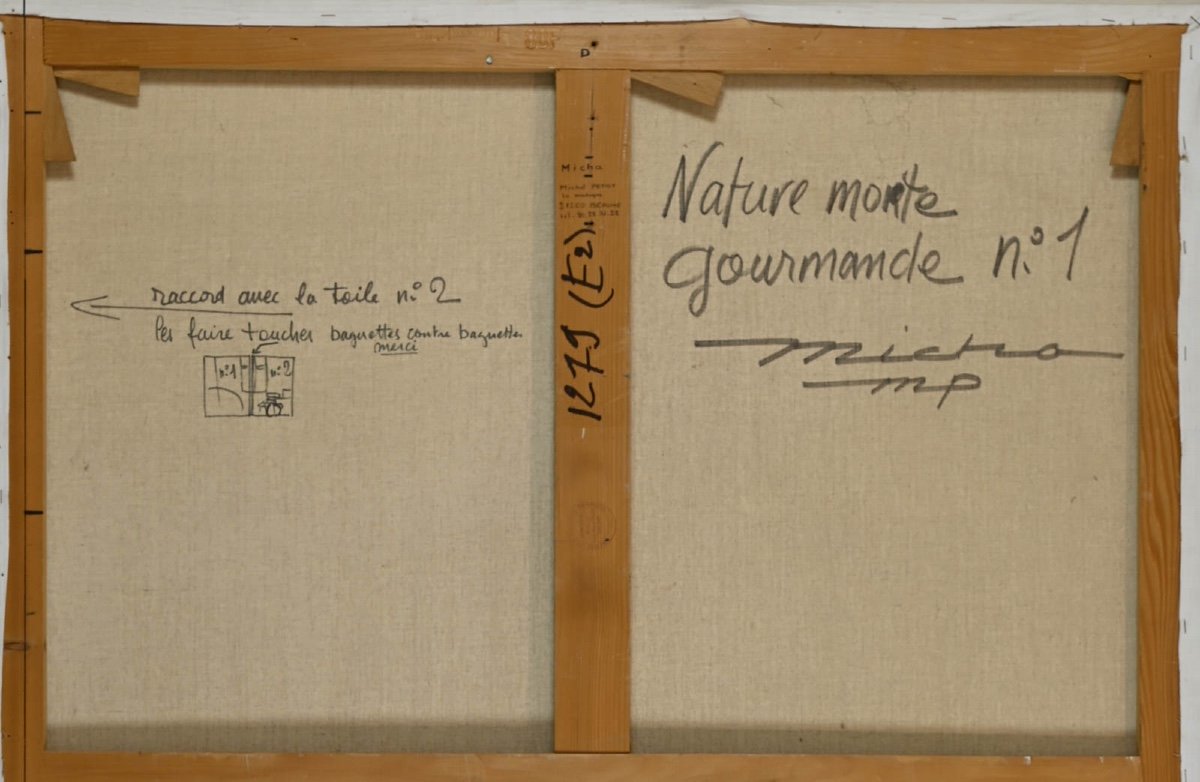 D
raccord avec la toile n° 2
les faire toucher baguettes contre baguettes
merci
n°1
n°2
Micha
Michel
1279 (E2)
Nature morte
gourmande n° 1
micha
mp